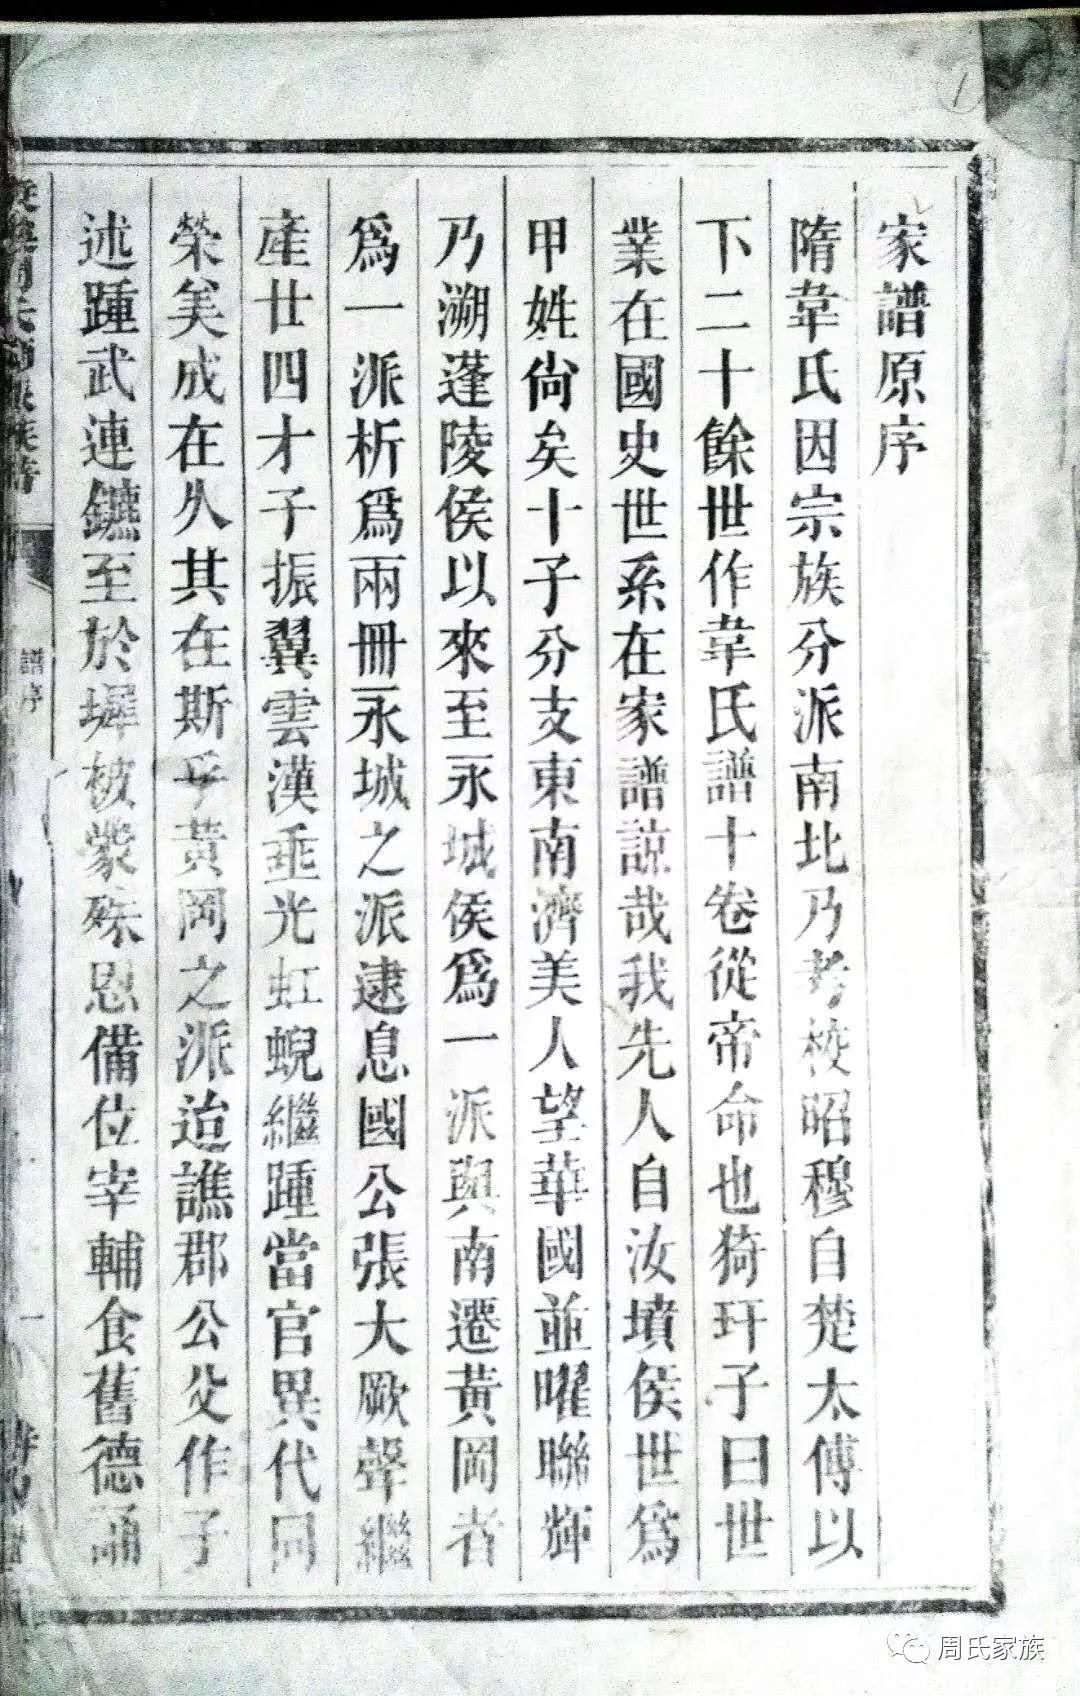 家譜原序
隋韋氏因宗族分派南北乃考校昭穆自楚太傅以
下二十餘世作韋氏譜十卷從帝命也猗玗子曰世
業在國史世系在家譜諒哉我先人自汝墳侯世爲
甲姓尙矣十子分支東南濟美人望華國並曜聯輝
乃溯蓬陵侯以來至永城侯爲一派與南遷黃岡者
爲一派析爲兩冊永城之派逮息國公張大厥聲繼
產廿四才子振翼雲漢垂光虹蜺繼踵當官異代同
榮矣成在久其在斯乎黃岡之派迨譙郡公父作子
述踵武連鑣至於墀被蒙殊恩備位宰輔食舊德誦
譜序
一
1
周氏家族